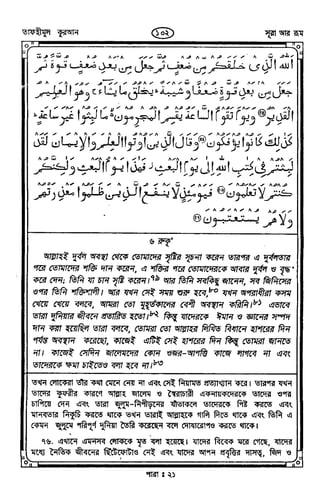 তাফহীমুল কুরআন ১০২ সূরা আর রূম
اَللّٰهُ الَّذِىْ خَلَقَكُمْ مِّنْ ضُعْفٍ ثُمَّ جَعَلَ مِنْۢ بَعْدِ ضُعْفٍ قُوَّةً ثُمَّ
جَعَلَ مِنْۢ بَعْدِ قُوَّةٍ ضُعْفًا وَّشَيْبَةً ؕ يَخْلُقُ مَا يَشَآءُ ۚ وَهُوَ الْعَلِيْمُ
الْقَدِيْرُ ۝ وَيَوْمَ تَقُوْمُ السَّاعَةُ يُقْسِمُ الْمُجْرِمُوْنَ ۙ مَا لَبِثُوْا غَيْرَ سَاعَةٍ ؕ
كَذٰلِكَ كَانُوْا يُؤْفَكُوْنَ ۝ وَقَالَ الَّذِيْنَ اُوْتُوا الْعِلْمَ وَالْاِيْمَانَ لَقَدْ
لَبِثْتُمْ فِىْ كِتٰبِ اللّٰهِ اِلٰى يَوْمِ الْبَعْثِ ؗ فَهٰذَا يَوْمُ الْبَعْثِ وَلٰكِنَّكُمْ
كُنْتُمْ لَا تَعْلَمُوْنَ ۝ فَيَوْمَئِذٍ لَّا يَنْفَعُ الَّذِيْنَ ظَلَمُوْا مَعْذِرَتُهُمْ
وَلَا هُمْ يُسْتَعْتَبُوْنَ ۝
৬ রুকূ'
আল্লাহই দুর্বল অবস্থা থেকে তোমাদের সৃষ্টির সূচনা করেন তারপর এ দুর্বলতার
পরে তোমাদের শক্তি দান করেন, এ শক্তির পরে তোমাদেরকে আবার দুর্বল ও বৃদ্ধ
করে দেন; তিনি যা চান সৃষ্টি করেন।৭৯ আর তিনি সবকিছু জানেন, সব জিনিসের
ওপর তিনি শক্তিশালী। আর যখন সেই সময় শুরু হবে,৮০ যখন অপরাধীরা কসম
খেয়ে খেয়ে বলবে, আমরা তো মুহূর্তকালের বেশী অবস্থান করিনি।৮১ এভাবে
তারা দুনিয়ার জীবনে প্রতারিত হতো।৮২ কিন্তু যাদেরকে ঈমান ও জ্ঞানের সম্পদ
দান করা হয়েছিল তারা বলবে, তোমরা তো আল্লাহর লিখিত বিধানে হাশরের দিন
পর্যন্ত অবস্থান করেছো, কাজেই এটিই সেই হাশরের দিন কিন্তু তোমরা জানতে
না। কাজেই সেদিন জালেমদের কোন ওজর-আপত্তি কাজে লাগবে না এবং
তাদেরকে ক্ষমা চাইতেও বলা হবে না।৮৩
যখন লোকেরা তাঁর কথা মেনে নেয় না এবং সেই নিয়ামত প্রত্যাখ্যান করে। তারপর যখন
তাদের কুফরীর কারণে আল্লাহ জালেম ও স্বৈরাচারী একনায়কদেরকে তাদের ওপর
চাপিয়ে দেন এবং তারা জুলুম-নিপীড়নের যাঁতাকলে তাদেরকে পিষ্ট করতে এবং
মানবতার নিকুচি করতে থাকে তখন তারাই আল্লাহকে গালি দিতে থাকে এবং তিনি এ
কেমন জুলুমে পরিপূর্ণ দুনিয়া তৈরি করেছেন বলে দোষারোপও করতে থাকে।
৭৬. এখানে এমনসব লোককে মৃত বলা হয়েছে। যাদের বিবেক মরে গেছে, যাদের
মধ্যে নৈতিক জীবনের ছিটেফোঁটাও নেই এবং যাদের আপন প্রবৃত্তির দাসত্ব, জিদ ও
পারা : ২১